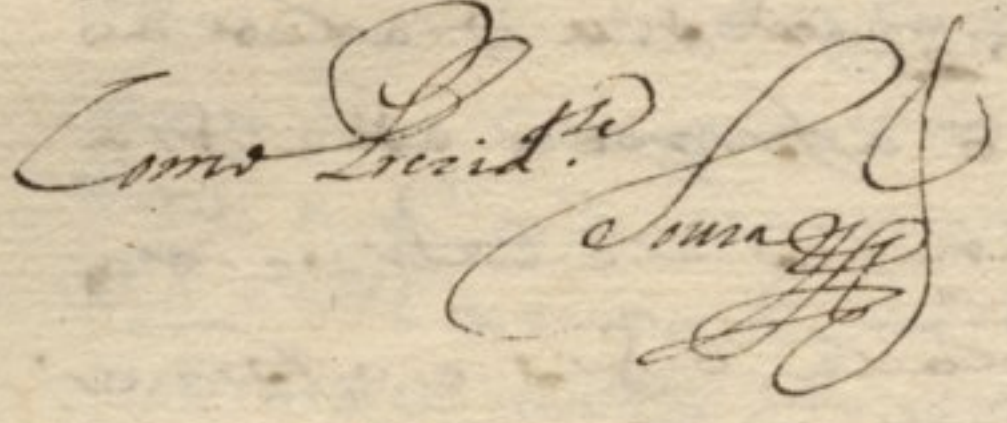 Como Prezid.te
Souza